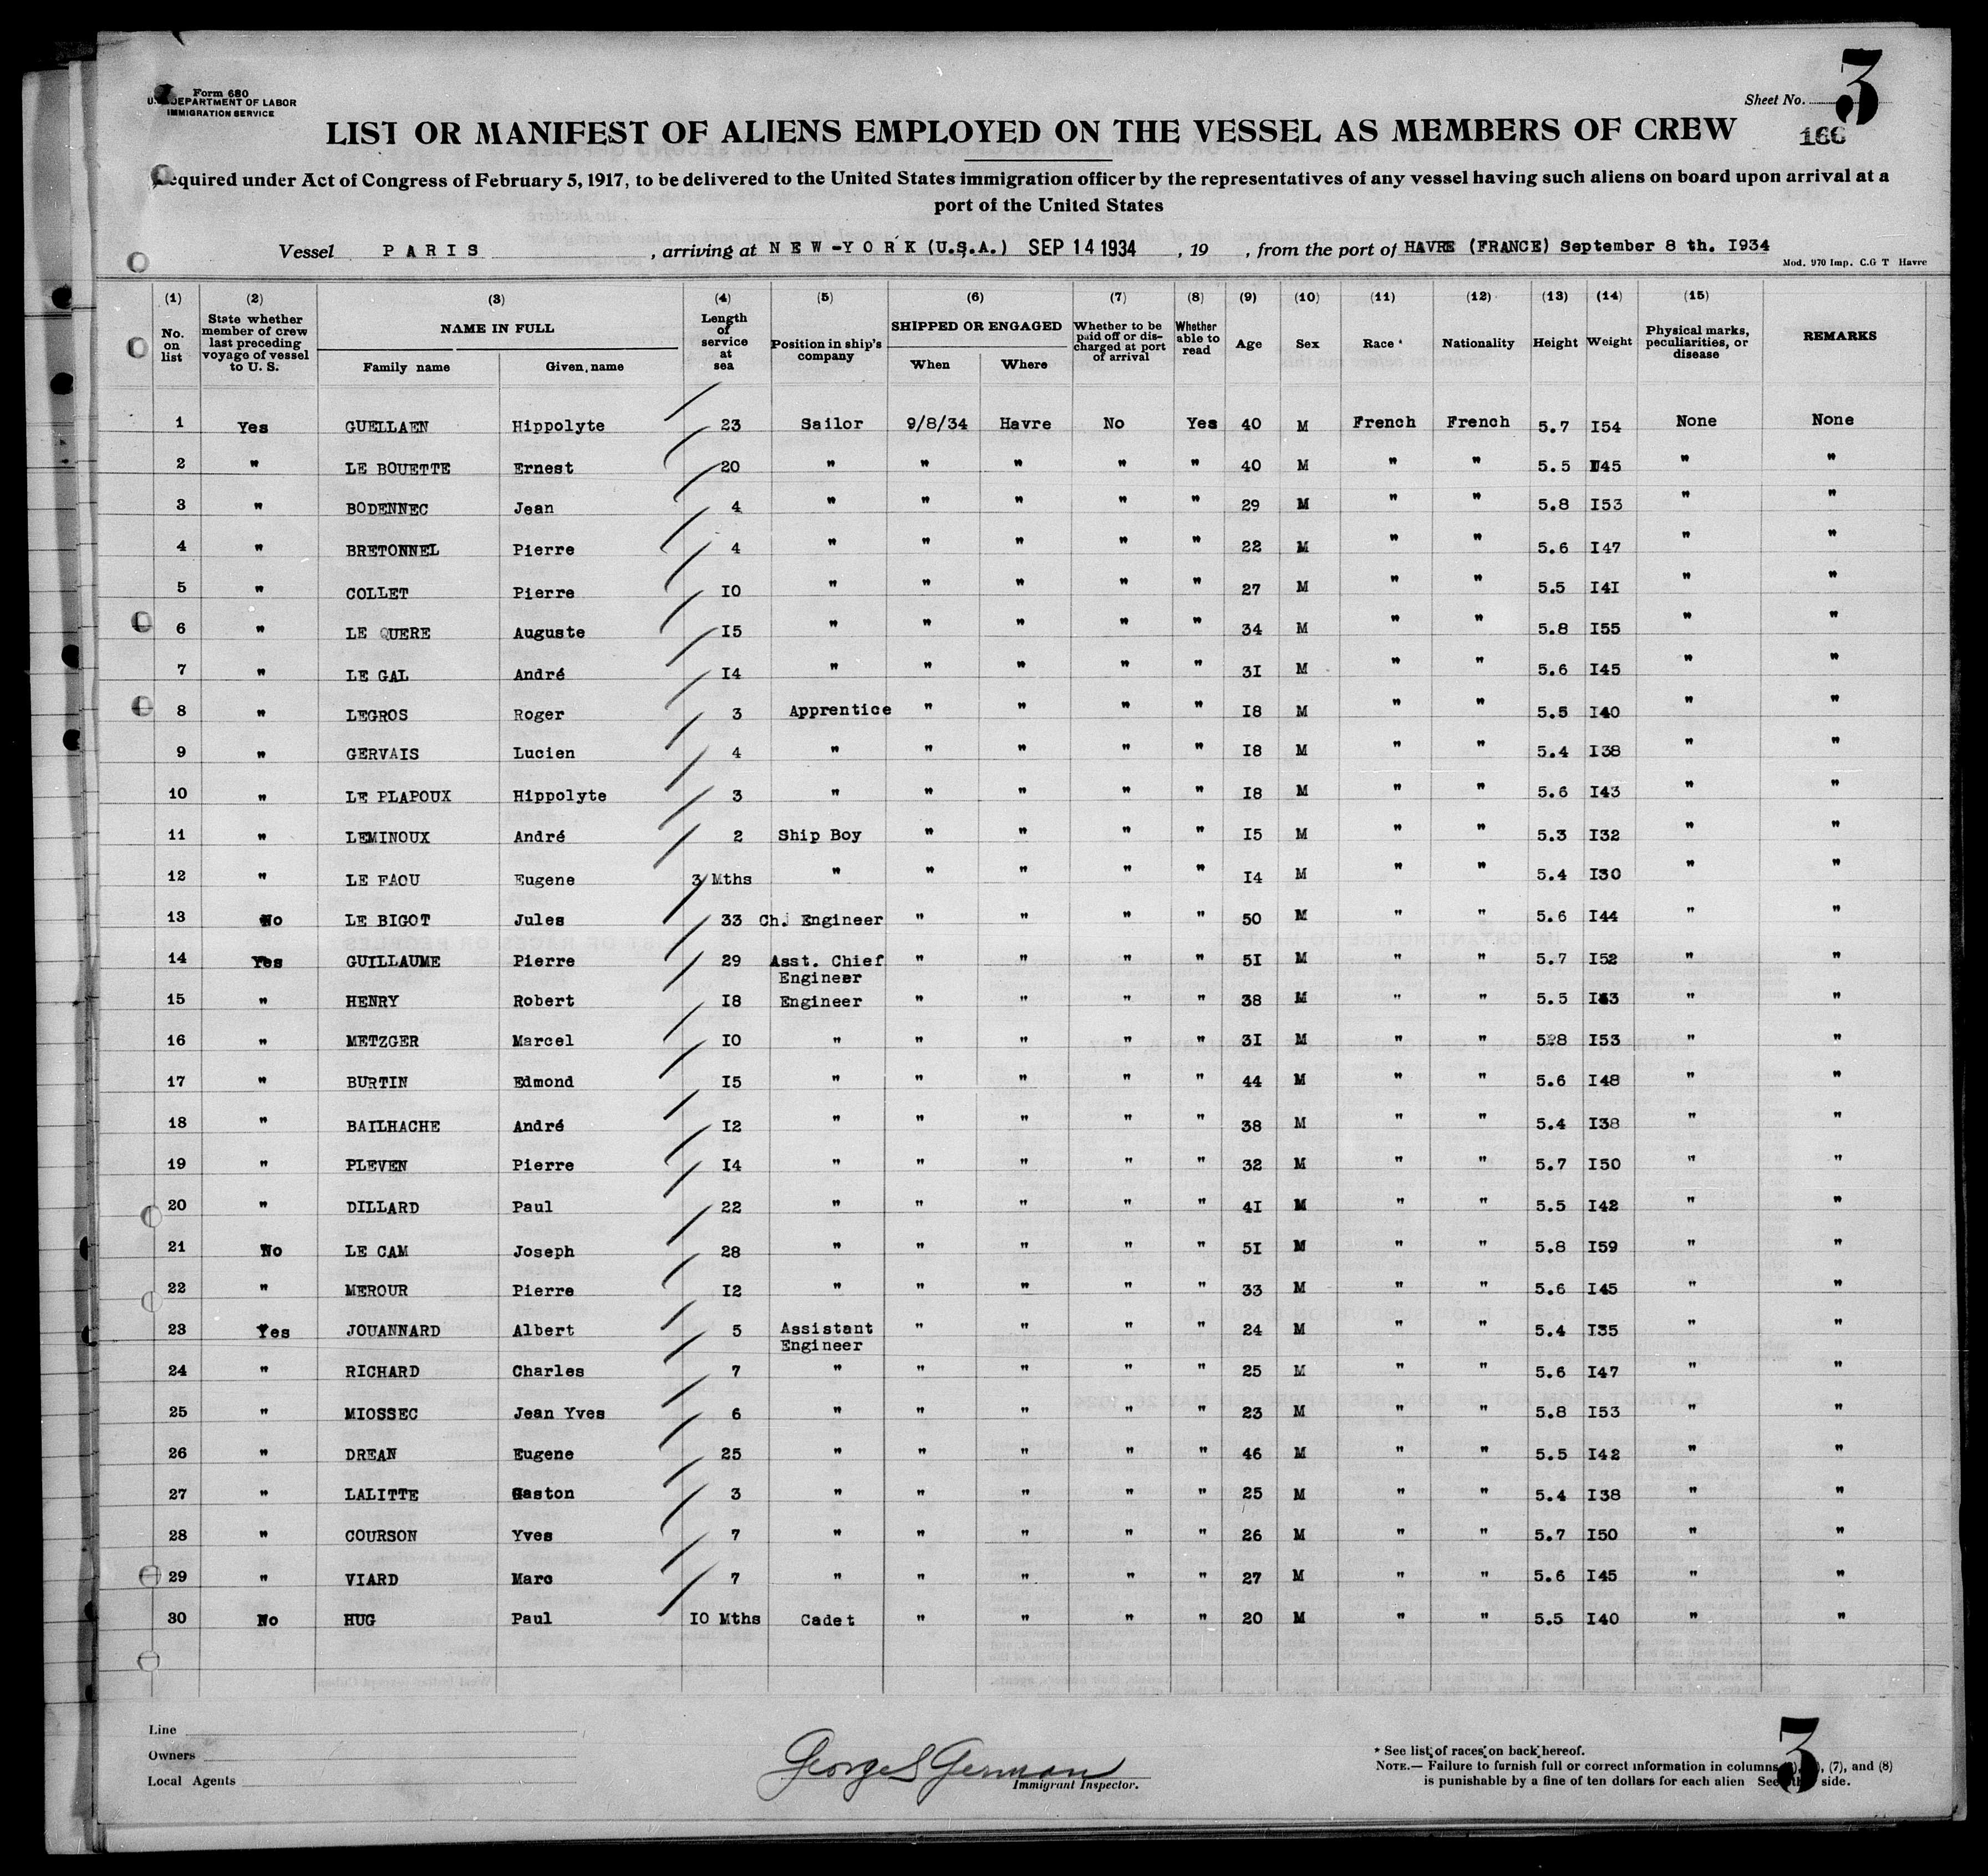 Form 680
U.S. DEPARTMENT OF LABOR
IMMIGRATION SERVICE
Sheet No. 3
166
LIST OR MANIFEST OF ALIENS EMPLOYED ON THE VESSEL AS MEMBERS OF CREW
Required under Act of Congress of February 5, 1917, to be delivered to the United States immigration officer by the representatives of any vessel having such aliens on board upon arrival at a
port of the United States
Vessel PARIS, arriving at NEW-YORK (U.S.A.) SEP 14 1934, 19 , from the port of HAVRE (FRANCE) September 8 th. I934
Mod. 970 Imp. C.G T Havre
(1) (2) (3) (4) (5) (6) (7) (8) (9) (10) (11) (12) (13) (14) (15)
No. on list State whether member of crew last preceding voyage of vessel to U. S. NAME IN FULL Family name Given name Length of service at sea Position in ship's company SHIPPED OR ENGAGED When Where Whether to be paid off or discharged at port of arrival Whether able to read Age Sex Race * Nationality Height Weight Physical marks, peculiarities, or disease REMARKS
1 Yes GUELLAEN Hippolyte 23 Sailor 9/8/34 Havre No Yes 40 M French French 5.7 I54 None None
2 " LE BOUETTE Ernest 20 " " " " " 40 M " " 5.5 I45 " "
3 " BODENNEC Jean 4 " " " " " 29 M " " 5.8 I53 " "
4 " BRETONNEL Pierre 4 " " " " " 22 M " " 5.6 I47 " "
5 " COLLET Pierre IO " " " " " 27 M " " 5.5 I4I " "
6 " LE QUERE Auguste I5 " " " " " 34 M " " 5.8 I55 " "
7 " LE GAL André I4 " " " " " 3I M " " 5.6 I45 " "
8 " LEGROS Roger 3 Apprentice " " " " I8 M " " 5.5 I40 " "
9 " GERVAIS Lucien 4 " " " " " I8 M " " 5.4 I38 " "
10 " LE PLAPOUX Hippolyte 3 " " " " " I8 M " " 5.6 I43 " "
11 " LEMINOUX André 2 Ship Boy " " " " I5 M " " 5.3 I32 " "
12 " LE FAOU Eugene 3 Mths " " " " " I4 M " " 5.4 I30 " "
13 No LE BIGOT Jules 33 Ch. Engineer " " " " 50 M " " 5.6 I44 " "
14 Yes GUILLAUME Pierre 29 Asst. Chief Engineer " " " " 5I M " " 5.7 I52 " "
15 " HENRY Robert I8 Engineer " " " " 38 M " " 5.5 " "
16 " METZGER Marcel IO " " " " " 3I M " " 5.8 I53 " "
17 " BURTIN Edmond I5 " " " " " 44 M " " 5.6 I48 " "
18 " BAILHACHE André I2 " " " " " 38 M " " 5.4 I38 " "
19 " PLEVEN Pierre I4 " " " " " 32 M " " 5.7 I50 " "
20 " DILLARD Paul 22 " " " " " 4I M " " 5.5 I42 " "
21 No LE CAM Joseph 28 " " " " " 5I M " " 5.8 I59 " "
22 " MEROUR Pierre I2 " " " " " 33 M " " 5.6 I45 " "
23 Yes JOUANNARD Albert 5 Assistant Engineer " " " " 24 M " " 5.4 I35 " "
24 " RICHARD Charles 7 " " " " " 25 M " " 5.6 I47 " "
25 " MIOSSEC Jean Yves 6 " " " " " 23 M " " 5.8 I53 " "
26 " DREAN Eugene 25 " " " " " 46 M " " 5.5 I42 " "
27 " LALITTE Gaston 3 " " " " " 25 M " " 5.4 I38 " "
28 " COURSON Yves 7 " " " " " 26 M " " 5.7 I50 " "
29 " VIARD Marc 7 " " " " " 27 M " " 5.6 I45 " "
30 No HUG Paul IO Mths Cadet " " " " 20 M " " 5.5 I40 " "
Line
Owners
Local Agents
George S German
Immigrant Inspector.
* See list of races on back hereof.
NOTE.— Failure to furnish full or correct information in columns , (7), and (8)
is punishable by a fine of ten dollars for each alien See other side.
3